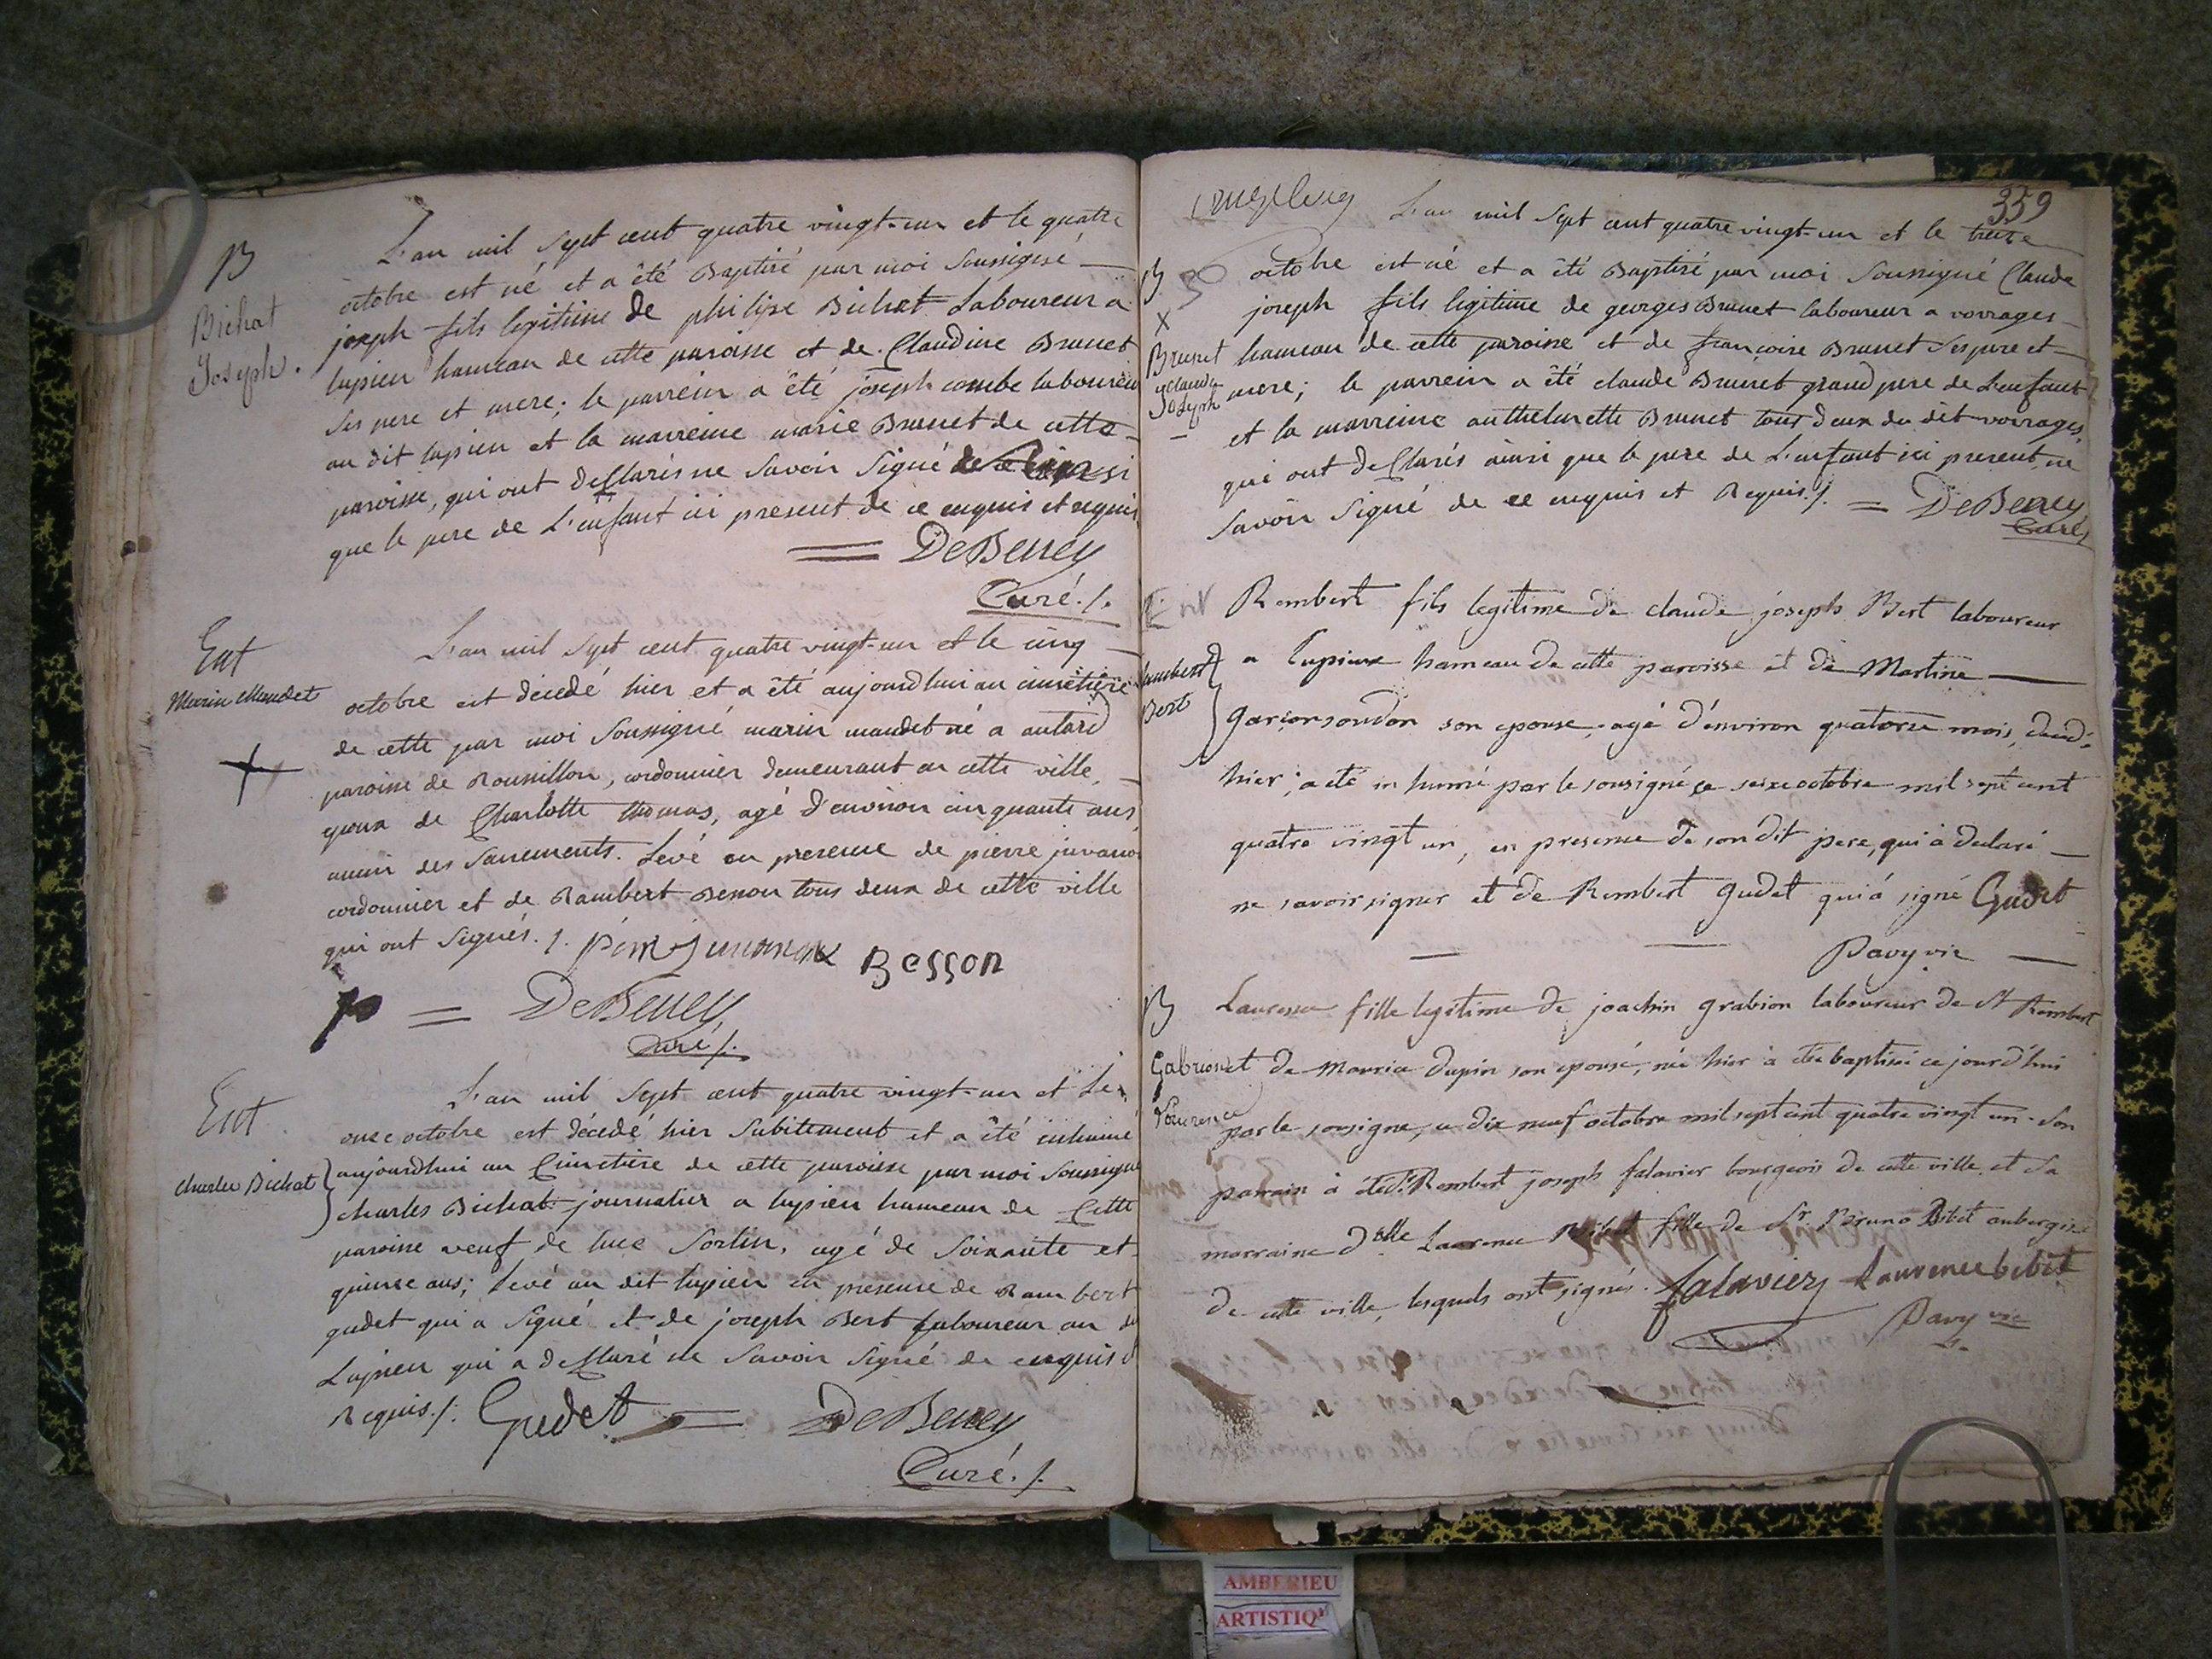 B
Bichat
Joseph.
L'an mil sept cent quatre vingt-un et le quatre
octobre est né et a êté Baptisé par moi soussigné
joseph fils legitime de philipe Bichat Laboureur a
lupieu hameau de cette paroisse et de Claudine Brunet
ses pere et mere; le parrein a êté joseph combe laboureur
au dit lupieu et la marreine marie Brunet de cette
paroisse, qui ont declarés ne savoir signé ainsi
que le pere de L'enfant ici present de ce enquis et requis.
= DeBeney
Curé./.
Ent
Marin Maudet
L'an mil sept cent quatre vingt-un et le cinq
octobre est décedé hier et a êté aujourdhui au cimetiere
de cette par moi soussigné marin maudet né a
paroisse de Roussillon, cordonnier demeurant en cette ville,
epoux de Charlotte thomas, agé d'environ cinquante ans
muni des sacrements. Levé en presence de pierre
cordonnier et de Rambert Besson tous deux de cette ville
qui ont signés./. Besson
= DeBeney
Curé/.
Ent
Charles Bichat
L'an mil sept cent quatre vingt-un et le
onze octobre est décedé hier subitement et a êté inhumé
aujourdhui au Cimetiere de cette paroisse par moi soussigné
charles Bichat journalier a lupieu hameau de Cette
paroisse veuf de luce Sorlin, agé de soixante et
quinze ans; levé au dit lupieu en presence de Rambert
gudet qui a signé et de joseph Bert laboureur au dit
Lupieu qui a declaré ne savoir signé de enquis et
Requis./. Gudet = DeBeney
Curé./.
359
B
X
Brunet
Claude
Joseph
L'an mil sept cent quatre vingt-un et le treize
octobre est né et a êté Baptisé par moi soussigné Claude
joseph fils legitime de georges Brunet laboureur a vorages
hameau de cette paroisse et de françoise Brunet ses pere et
mere; le parrein a été claude Brunet grand pere de L'enfant
et la marreine anthelmette Brunet tous deux du dit vorages,
qui ont declarés ainsi que le pere de L'enfant ici present, ne
savoir signé de ce enquis et Requis./. = DeBeney
Curé
Ent
Rambert
Bert
Rembert fils legitime de claude joseph Bert laboureur
a Lupieux hameau de cette paroisse et de Martine
son epouse, agé d'environ quatorze mois, decedé
hier, a eté in humé par le sousigné ce seize octobre mil sept cent
quatre vingt un, en presence de son dit pere, qui à declaré
ne savoir signer et de Rembert gudet qui à signé Gudet
Davy vic
B
Gabrion
Laurence
Laurence fille legitime de joachin grabion laboureur de St Rembert
et de Mauria dupin son epouse, née hier à eté baptisée ce jourd'hui
par le sousigné, ce dix neuf octobre mil sept cent quatre vingt un. Son
parrain à eté Sr Rembert joseph falavier bourgeois de cette ville, et sa
marraine dlle Laurence Bibet fille de Sr Bruno Bibet aubergiste
de cette ville, lesquels ont signés. falavier Laurence bibet
Davy vic
AMBERIEU
ARTISTIQ